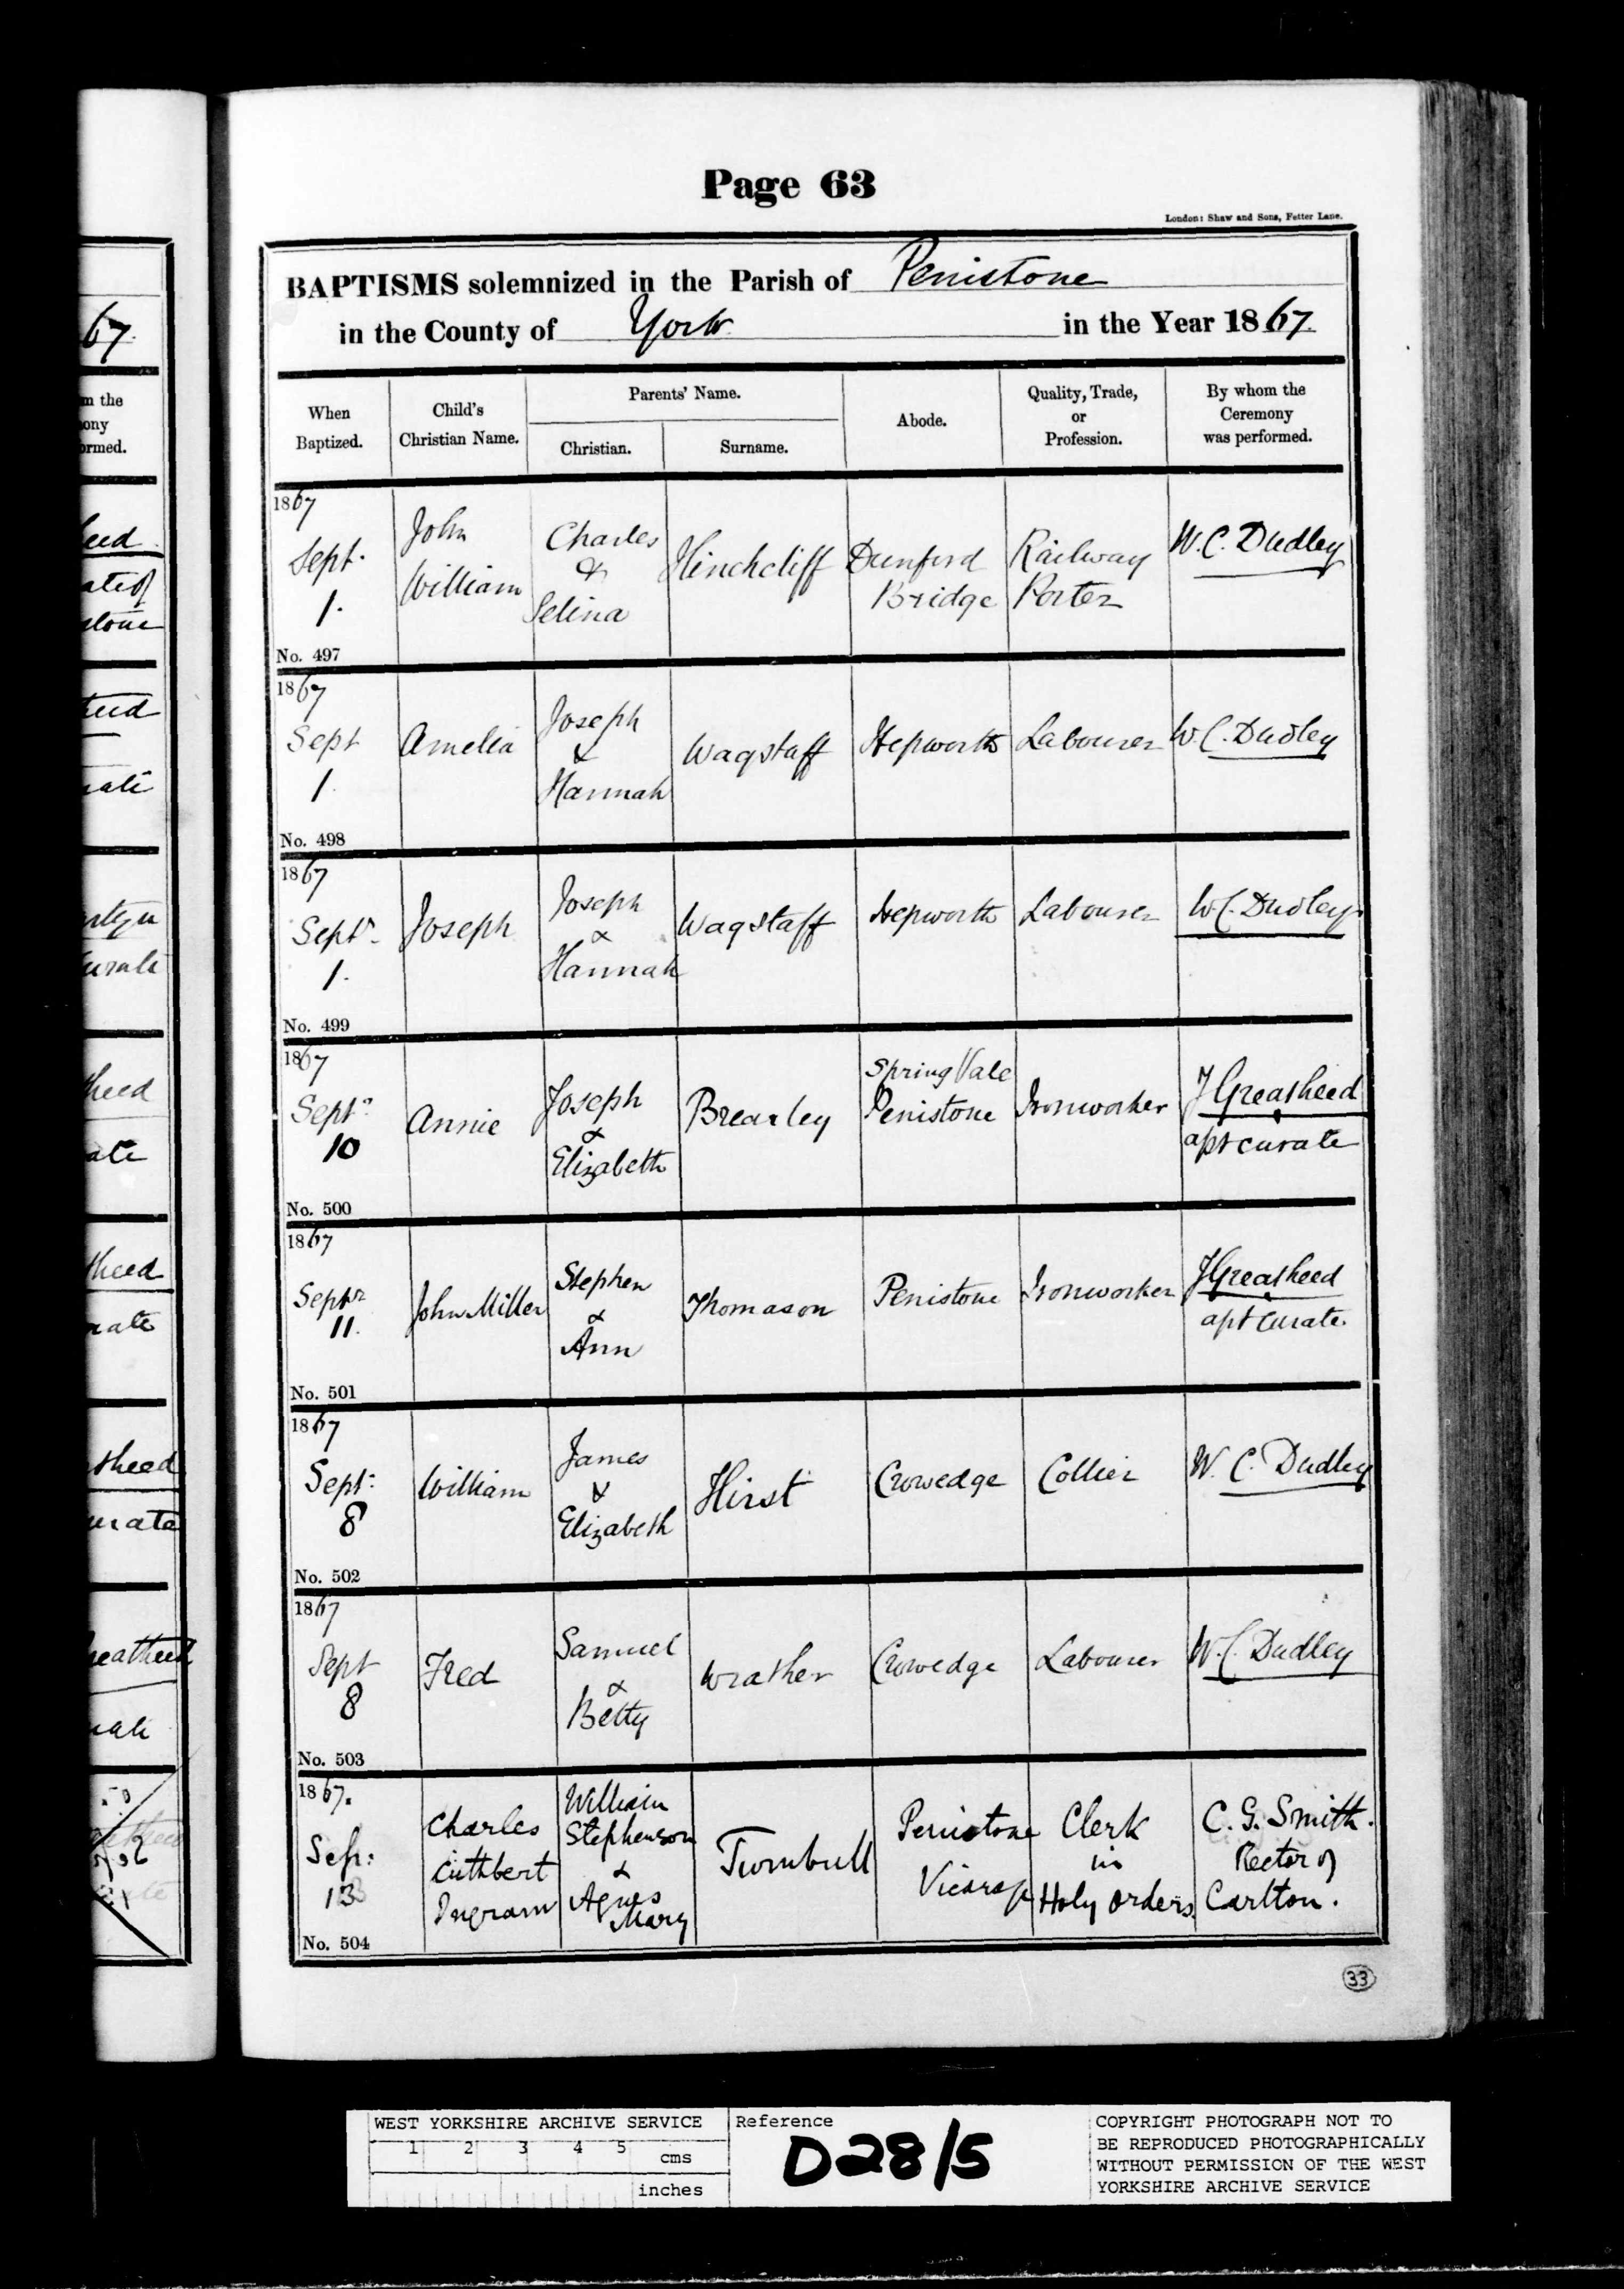 Page 63
London: Shaw and Sons, Fetter Lane.
BAPTISMS solemnized in the Parish of Penistone
in the County of York in the Year 1867.
When Baptized.
Child's Christian Name.
Parents' Name.
Christian.
Surname.
Abode.
Quality, Trade, or Profession.
By whom the Ceremony was performed.
1867
Sept. 1.
John William
Charles & Selina
Hinchcliff
Dunford Bridge
Railway Porter
W. C. Dudley
No. 497
1867
Sept 1.
Amelia
Joseph & Hannah
Wagstaff
Hepworth
Labourer
W. C. Dudley
No. 498
1867
Septr. 1.
Joseph
Joseph & Hannah
Wagstaff
Hepworth
Labourer
W. C. Dudley
No. 499
1867
Septr. 10
Annie
Joseph & Elizabeth
Brearley
Spring Vale Penistone
Ironworker
J Greatheed
apt curate
No. 500
1867
Septr 11.
John Miller
Stephen & Ann
Thomason
Penistone
Ironworker
J Greatheed
apt Curate.
No. 501
1867
Sept: 8
William
James & Elizabeth
Hirst
Crowedge
Collier
W. C. Dudley
No. 502
1867
Sept 8
Fred
Samuel & Betty
Wrather
Crowedge
Labourer
W. C. Dudley
No. 503
1867.
Sep: 13
Charles Cuthbert Ingram
William Stephenson & Agnes Mary
Turnbull
Penistone Vicarage
Clerk in Holy Orders.
C. G. Smith. Rector of Carlton.
No. 504
33
WEST YORKSHIRE ARCHIVE SERVICE
1 2 3 4 5 cms
inches
Reference
D28/5
COPYRIGHT PHOTOGRAPH NOT TO
BE REPRODUCED PHOTOGRAPHICALLY
WITHOUT PERMISSION OF THE WEST
YORKSHIRE ARCHIVE SERVICE